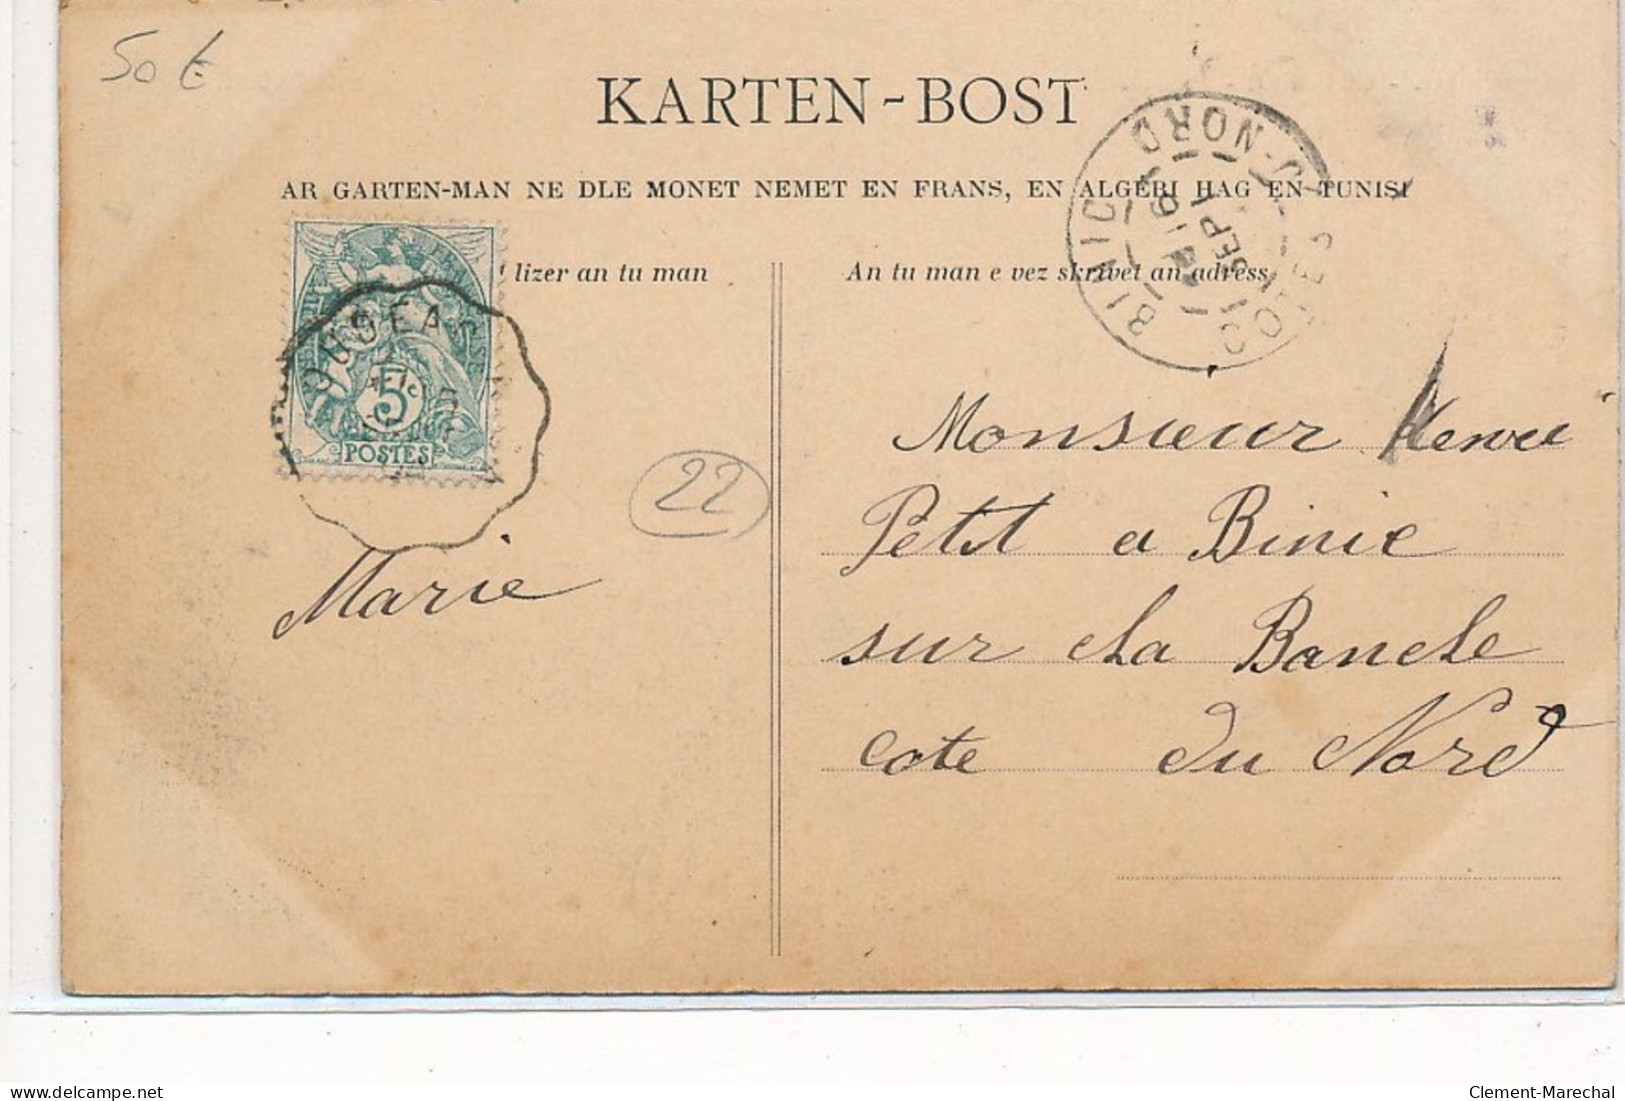 50 €
KARTEN-BOST
AR GARTEN-MAN NE DLE MONET NEMET EN FRANS, EN ALGERI HAG EN TUNISI
lizer an tu man
An tu man e vez skrivet an adress
BINIC
COTES-DU-NORD
SEPT
5c
POSTES
22
Marie
Monsieur
Petit a Binic
sur La Banche
cote du Nord
delcampe.net
Clement-Marechal